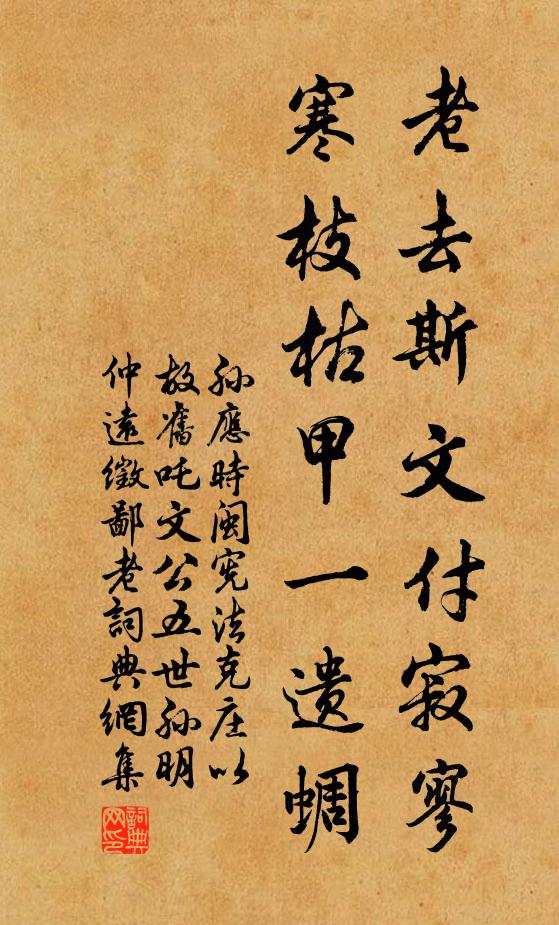 老去斯文付寂寥
寒枝枯甲一遗蜩
孙應時闽宪法克庄以
故旧吒文公五世孙明
仲遠徵鄙老詞典網集
詞典
网印